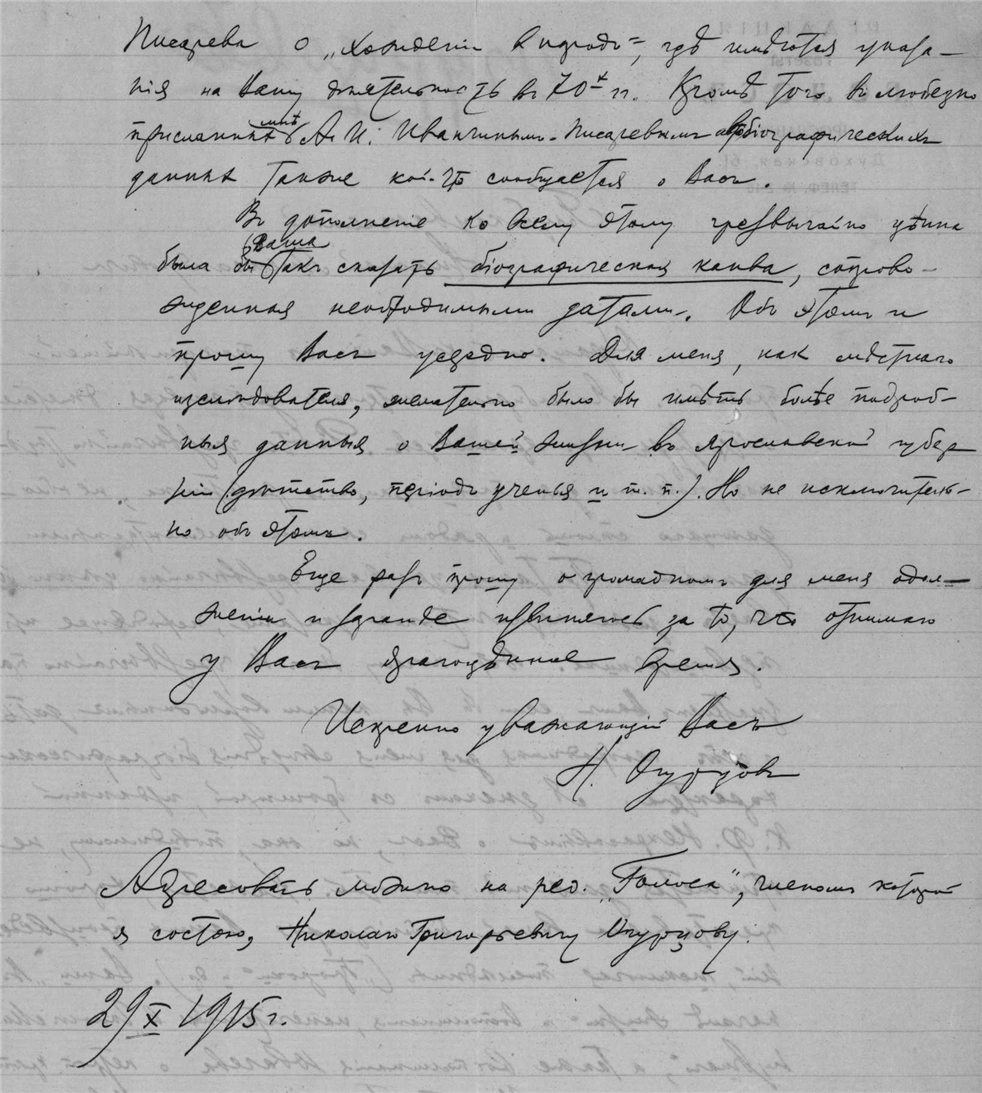 Писарева о „хожденіи в народъ“, гдѣ имѣются указа-
нія на Вашу дѣятельность въ 70х гг. Кромѣ того въ любезно
присланныхъ мнѣ А. И. Иванчинымъ-Писаревымъ автобіографическихъ
данных также кой-что сообщается о Васъ.
Въ дополненіе ко всему этому чрезвычайно цѣнна
была бы Ваша, такъ сказать, біографическая канва, сопрово-
жденная необходимыми датами. Объ этомъ и
прошу Васъ усердно. Для меня, как мѣстнаго
изслѣдователя, желательно было бы имѣть болѣе подроб-
ныя данныя о Вашей жизни въ Ярославской губер-
ніи (дѣтство, періодъ ученья и т. п.). Но не исключитель-
но объ этомъ.
Еще разъ прошу о громадномъ для меня одол-
женіи и заранѣе извиняюсь за то, что отнимаю
у Васъ драгоцѣнное время.
Искренно уважающій Васъ
Н. Огурцовъ
Адресовать можно на ред. „Голоса“, членомъ которой
я состою, Николаю Григорьевичу Огурцову.
29 X 1915 г.